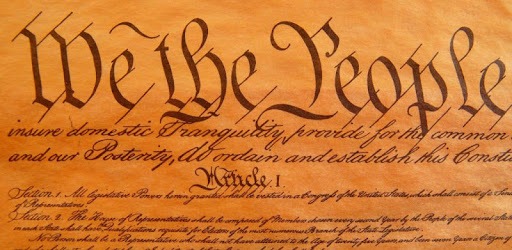 We the People
insure domestic Tranquility, provide for the common
and our Posterity, do ordain and establish this Constitu
Article. I.
Section. 1. All legislative Powers herein granted shall be vested in a Congress of the United States, which shall consist of a Sena
of Representatives.
Section. 2. The House of Representatives shall be composed of Members chosen every second Year by the People of the several States
in each State shall have Qualifications requisite for Electors of the most numerous Branch of the State Legislature.
No Person shall be a Representative who shall not have attained to the Age of twenty five Years, and been seven Years a Citizen of